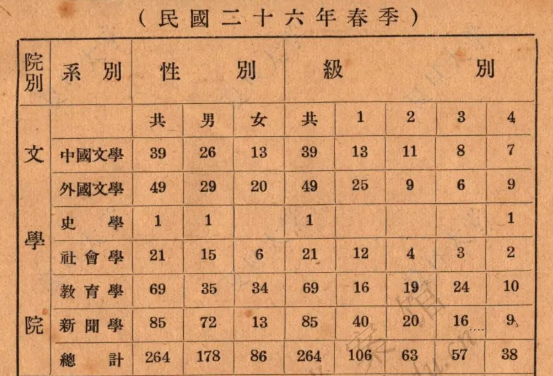 (民國二十六年春季)
院別 系別 性別 級別
共 男 女 共 1 2 3 4
文學院
中國文學 39 26 13 39 13 11 8 7
外國文學 49 29 20 49 25 9 6 9
史學 1 1 1 1
社會學 21 15 6 21 12 4 3 2
教育學 69 35 34 69 16 19 24 10
新聞學 85 72 13 85 40 20 16 9
總計 264 178 86 264 106 63 57 38